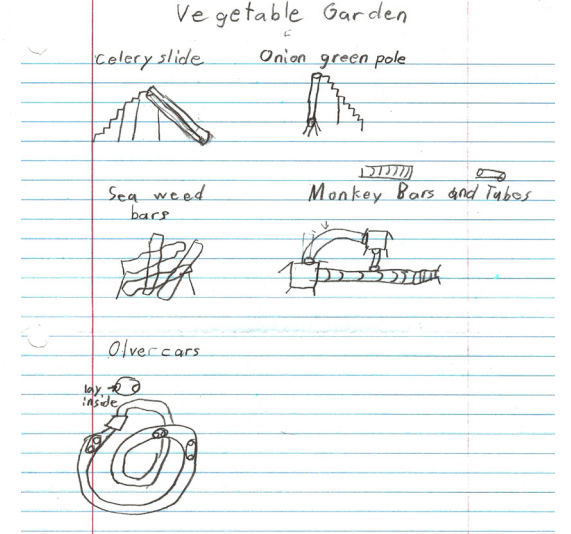 Vegetable Garden
Celery slide
Onion green pole
Sea weed
bars
Monkey Bars and Tubes
Olver cars
lay
inside